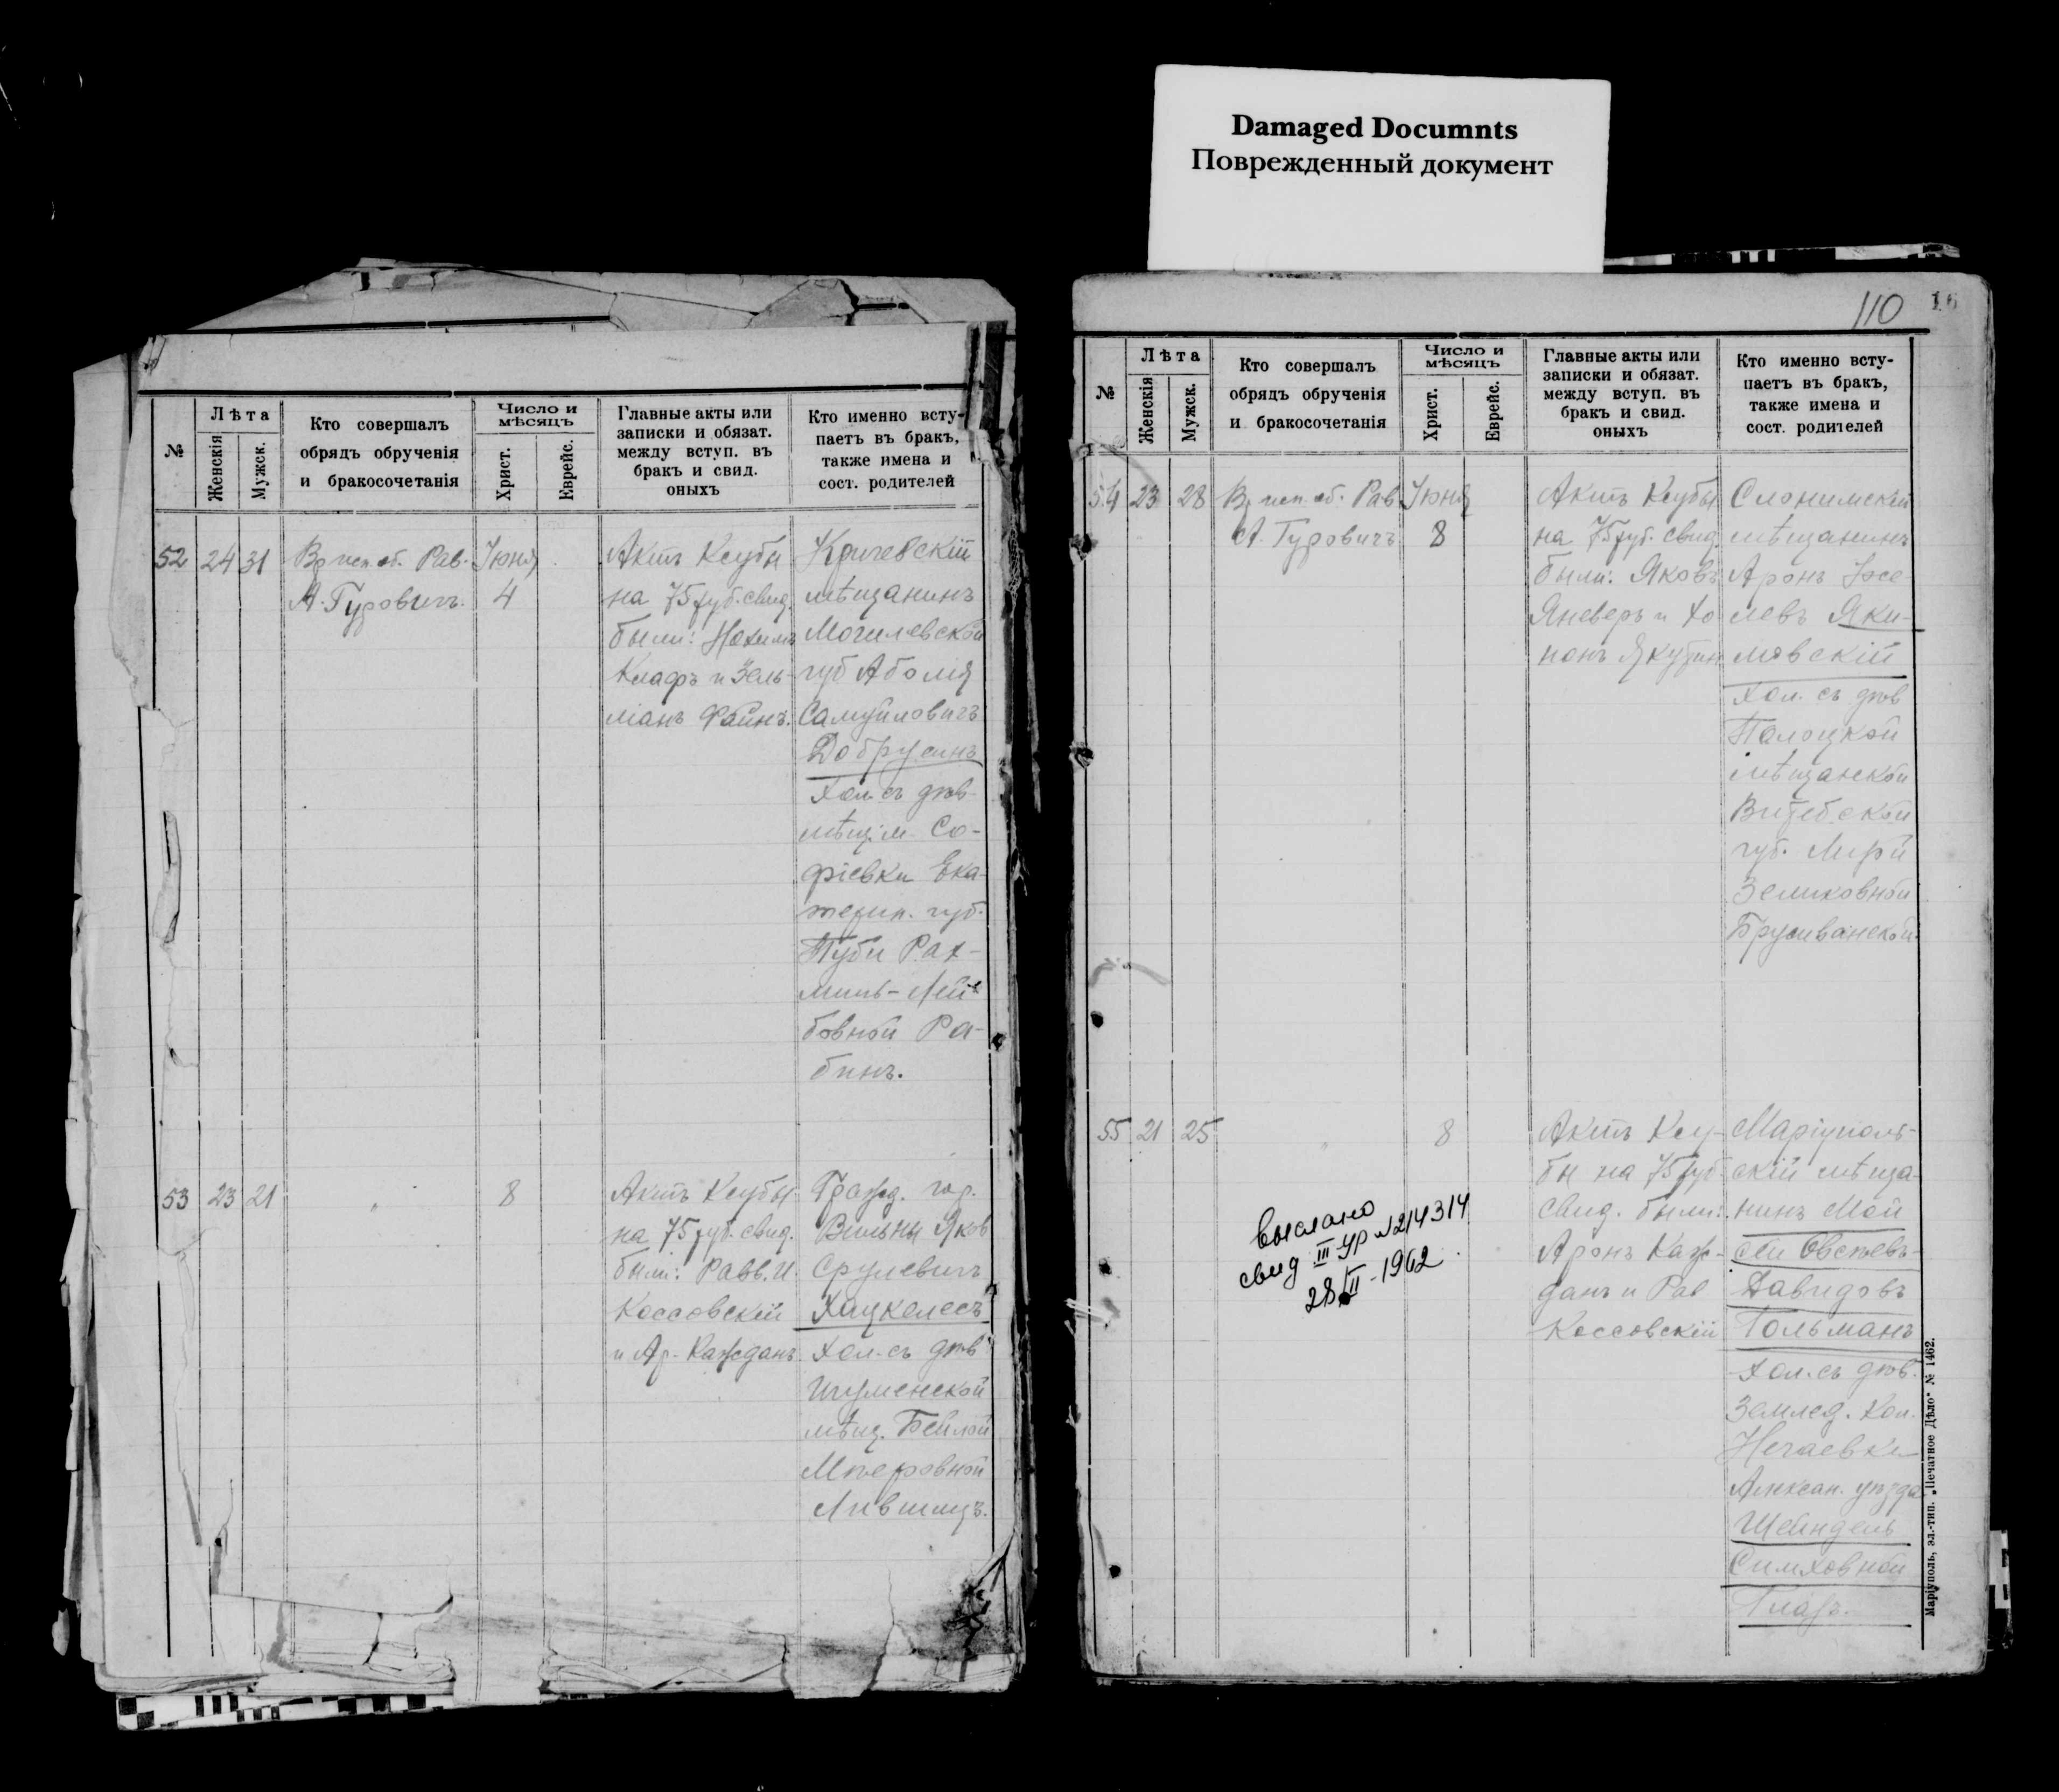 Damaged Documnts
Поврежденный документ
№
Лѣта
Женскія
Мужск.
Кто совершалъ
обрядъ обрученія
и бракосочетанія
Число и
мѣсяцъ
Христ.
Еврейс.
Главные акты или
записки и обязат.
между вступ. въ
бракъ и свид.
оныхъ
Кто именно всту-
паетъ въ бракъ,
также имена и
сост. родителей
52
24
31
Вр исп. об. Рав.
А. Гуровичъ.
Іюня
4
Актъ Ксубы
на 75 руб. свид.
были: Нохимъ
Клафъ и Зель-
манъ Файнъ.
Кричевскій
мѣщанинъ
Могилевской
губ Аболія
Самуйловичъ
Добрусинъ
Хол. съ дѣв.
мѣщ. м. Со-
фіевки Ека-
терин. губ.
Рах-
миль-Лей-
бовной Ра-
бинъ.
53
23
21
"
8
Актъ Ксубы
на 75 руб. свид.
были: Равв. И.
Коссовскій
и Ар. Кажданъ
Гражд. гор.
Вильны Яков
Срулевичъ
Хацкелесъ
Хол. съ дѣв
Игуменской
мѣщ. Бейлой
Мѣеровной
Лившицъ.
110
16
№
Лѣта
Женскія
Мужск.
Кто совершалъ
обрядъ обрученія
и бракосочетанія
Число и
мѣсяцъ
Христ.
Еврейс.
Главные акты или
записки и обязат.
между вступ. въ
бракъ и свид.
оныхъ
Кто именно всту-
паетъ въ бракъ,
также имена и
сост. родителей
54
23
28
Вр исп. об. Рав
А. Гуровичъ
Іюня
8
Актъ Ксубы
на 75 руб. свид.
были: Яковъ
Яневеръ и Хо
нонъ Якубин
Слонимскій
мѣщанинъ
Аронъ Іосе-
левъ Яки-
мовскій
Хол. съ дѣв
Полоцкой
мѣщанкой
Витебской
губ. Мирй
Зеликовной
55
21
25
"
8
Актъ Ксу-
бы на 75 руб
свид. были:
Аронъ Каж-
данъ и Рав
Коссовскій
Маріуполь-
скій мѣща-
нинъ Мой
сей Овсѣевъ-
Давидовъ
Гольманъ
Хол. съ дѣв.
Землед. Кол.
Нечаевки
Алексан. уѣзда
Шейндель
Симховной
Глазъ.
выслано
свид III УР №214314
28/II-1962.
Маріуполь, эл.-тип. „Печатное Дѣло" № 1462.